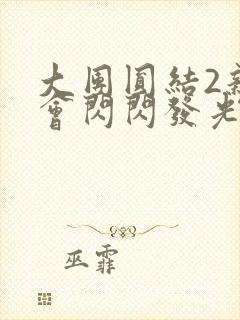 大團圓結2
會閃閃發光
巫霏